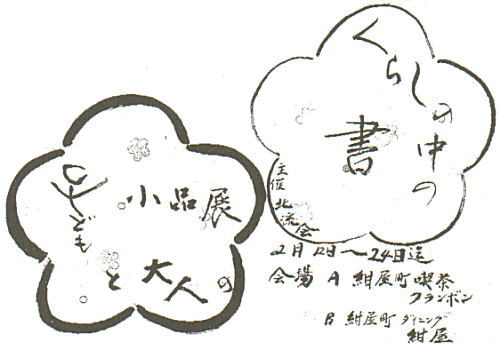 くらしの中の
書
子ども
と大人の
小品展
主催 北流会
2月12日〜24日迄
会場 A 紺屋町喫茶
フランボン
B 紺屋町ダイニング
紺屋